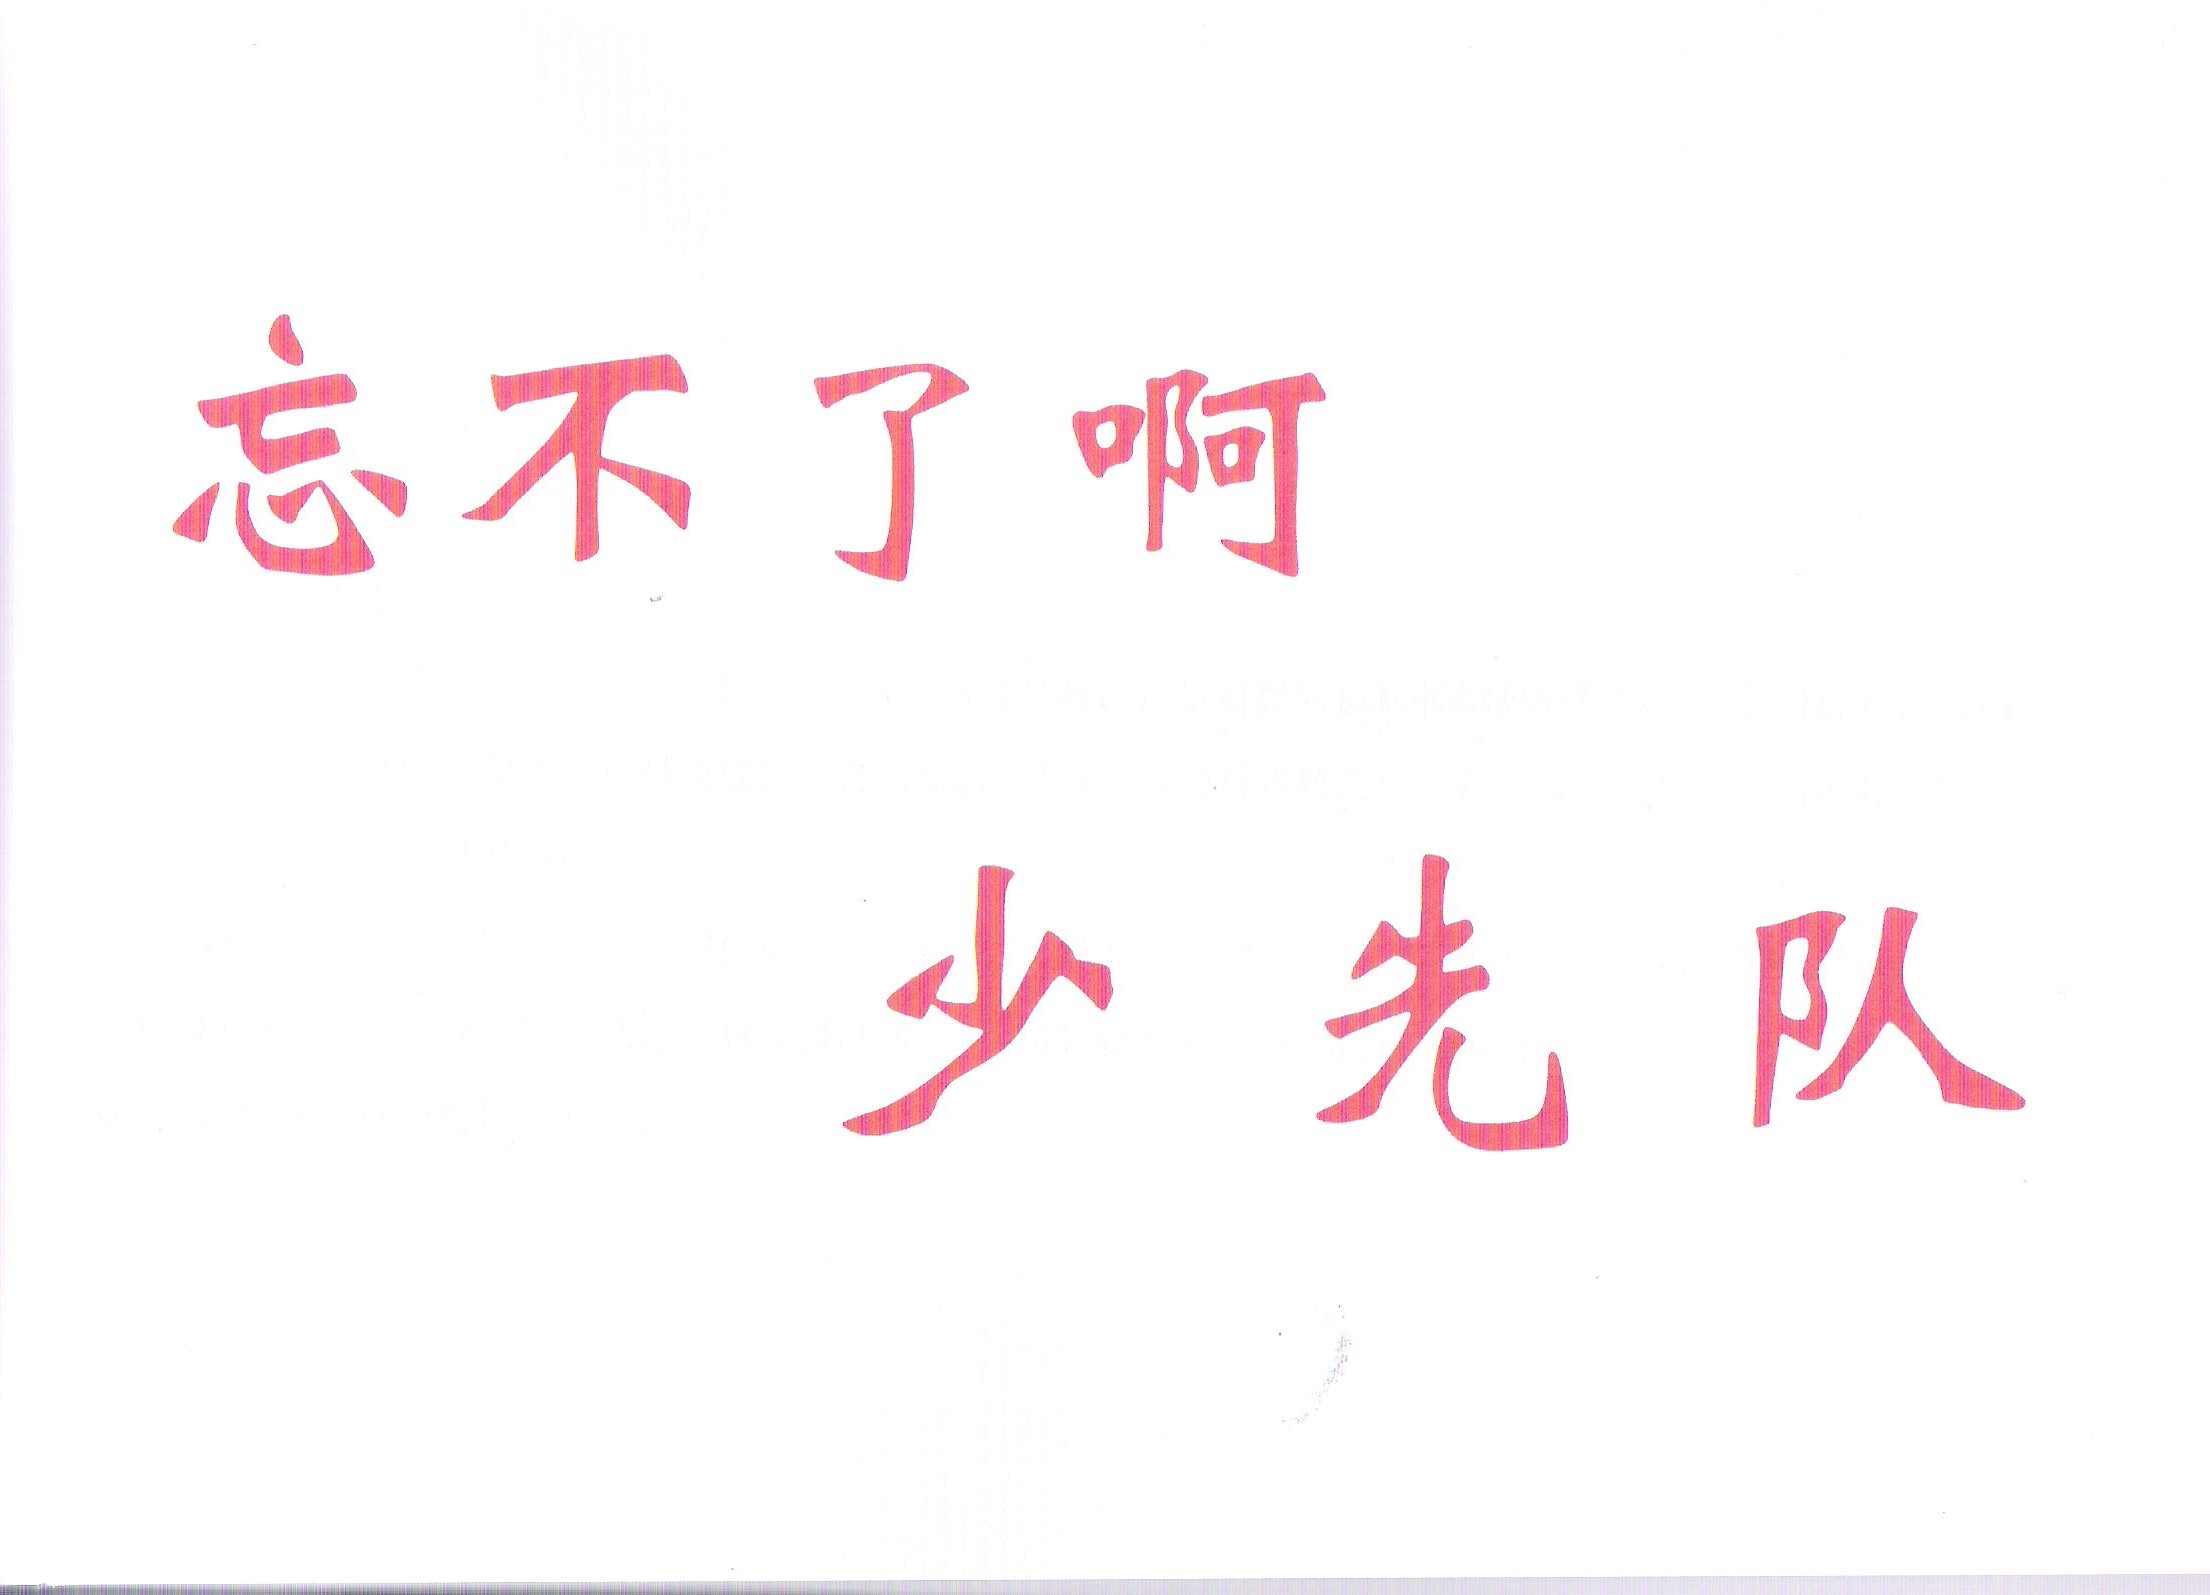 忘不了啊
少先队